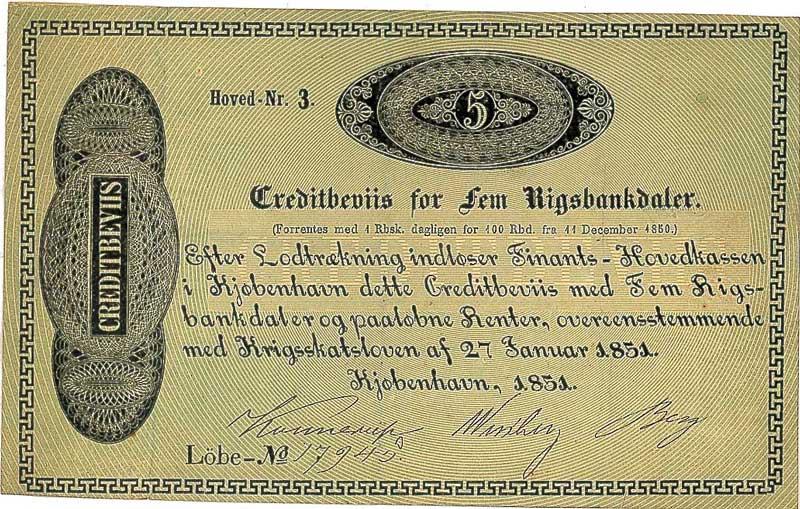 Hoved-Nr. 3.
5
CREDITBEVIIS
Creditbeviis for Fem Rigsbankdaler.
(Forrentes med 1 Rbsk. dagligen for 100 Rbd. fra 11 December 1850.)
Efter Lodtrækning indløser Finants-Hovedkassen
i Kjøbenhavn dette Creditbeviis med Fem Rigs-
bankdaler og paaløbne Renter, overeensstemmende
med Krigsskatsloven af 27 Januar 1851.
Kjøbenhavn, 1851.
Berg
Löbe-No 17945